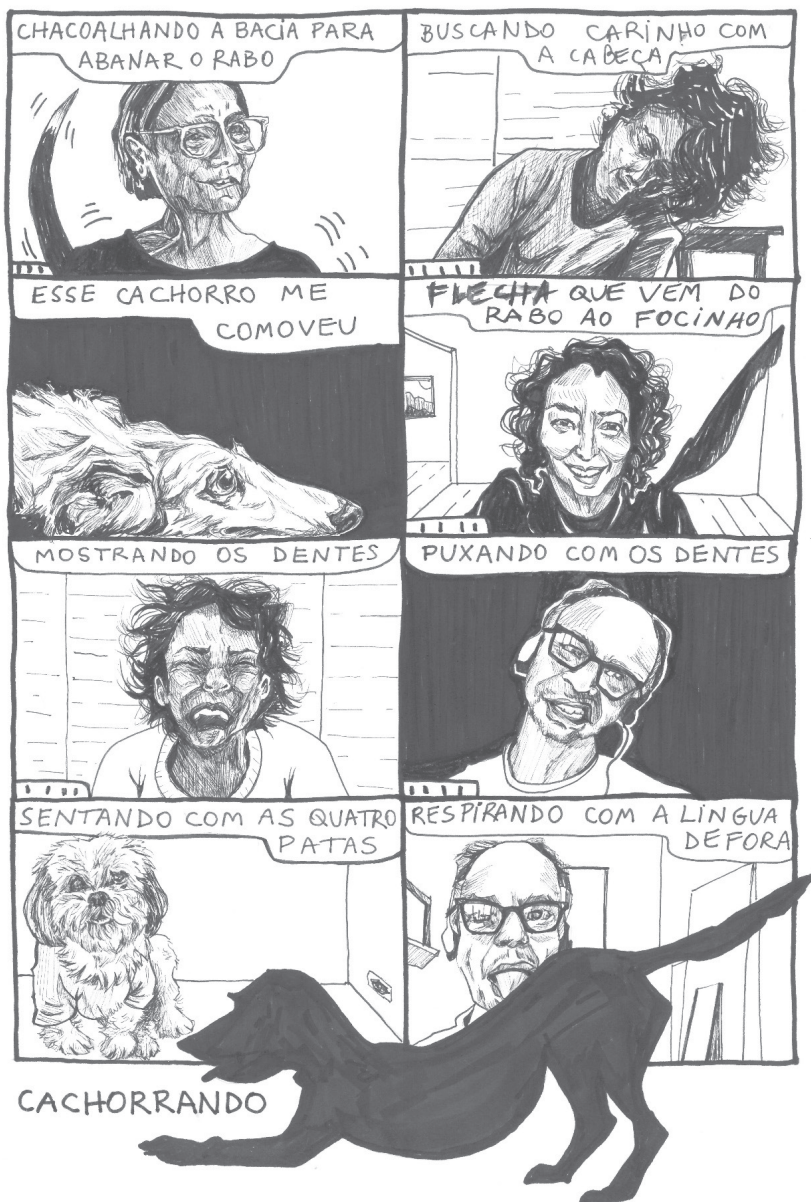 CHACOALHANDO A BACIA PARA
ABANAR O RABO
BUSCANDO CARINHO COM
A CABEÇA
ESSE CACHORRO ME
COMOVEU
FLECHA QUE VEM DO
RABO AO FOCINHO
MOSTRANDO OS DENTES
PUXANDO COM OS DENTES
SENTANDO COM AS QUATRO
PATAS
RESPIRANDO COM A LÍNGUA
DE FORA
CACHORRANDO